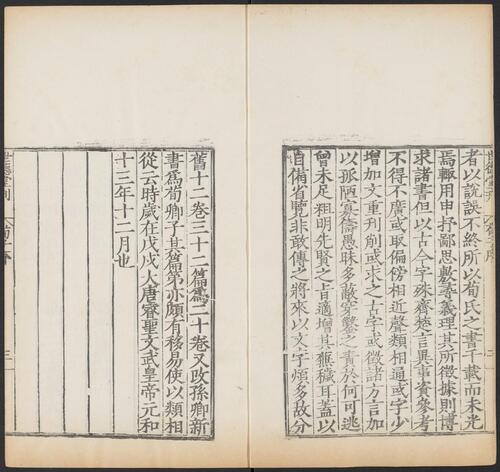 者以說誤不終所以荀氏之書千載而未光
焉輒用申抒鄙思敷尋義理其所徵據則博
求諸書但以古今字殊齊楚言異事資參考
不得不廣或取偏傍相近聲類相通或字少
增加文重刊削或求之古字或徵諸方言加
以孤陋寡儔愚昧多蔽穿鑿之責於何可逃
曾未足粗明先賢之旨適增其蕪穢耳蓋以
自備省覽非敢傳之將來以文字煩多故分
舊十二卷三十二篇爲二十卷又改孫卿新
書爲荀卿子其篇第亦頗有移易使以類相
從云時歲在戊戌大唐睿聖文武皇帝元和
十三年十二月也